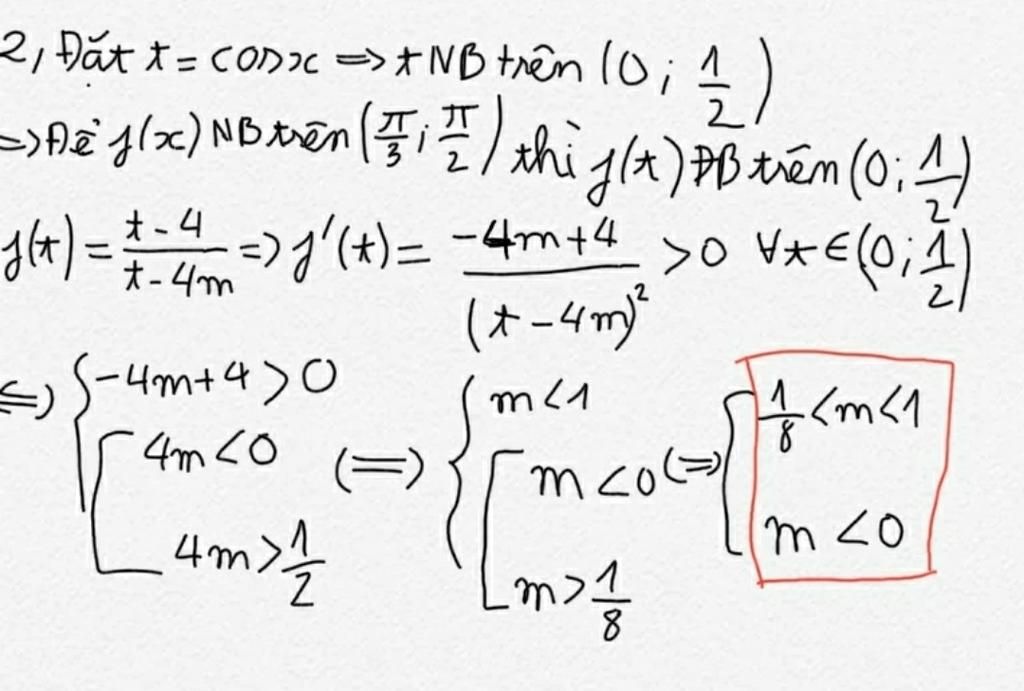 2, Đặt t = cosx => t NB trên (0; 1/2)
=> Để f(x) NB trên (π/3; π/2) thì f(t) ĐB trên (0; 1/2)
f(t) = (t - 4)/(t - 4m) => f'(t) = (-4m+4)/(t - 4m)² > 0 ∀t ∈ (0; 1/2)
<=> { -4m+4 > 0 [ 4m < 0 4m > 1/2 (=) { m < 1 [ m < 0 m > 1/8 (=) [ 1/8 < m < 1 m < 0